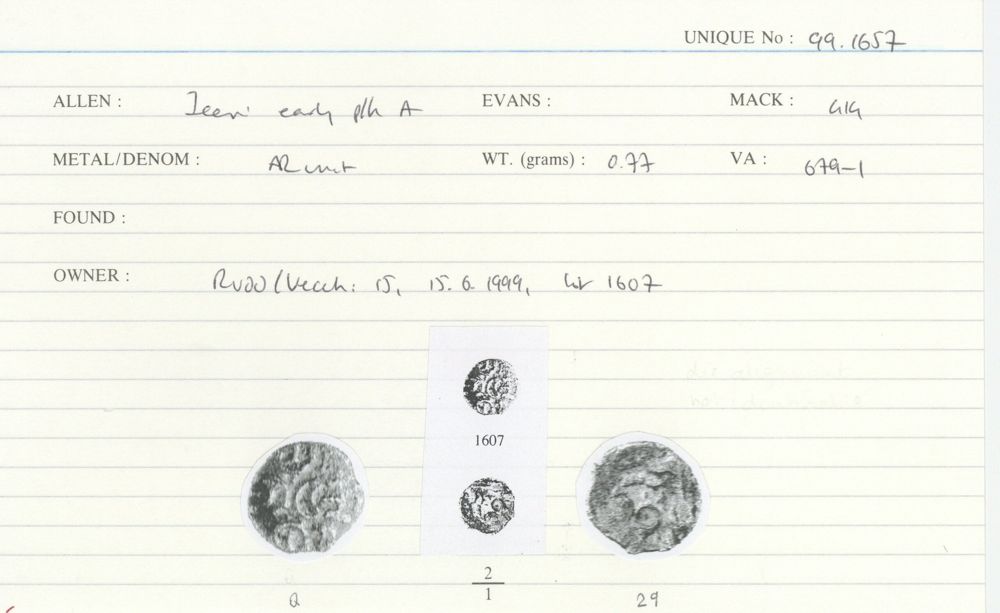 UNIQUE No : 99.1657
ALLEN : Iceni early p/h A EVANS : MACK : 414
METAL/DENOM : AR unit WT. (grams) : 0.77 VA : 679-1
FOUND :
OWNER : RUDD/Vecchi 15, 15.6.1999, lot 1607
1607
2
1
Q 29